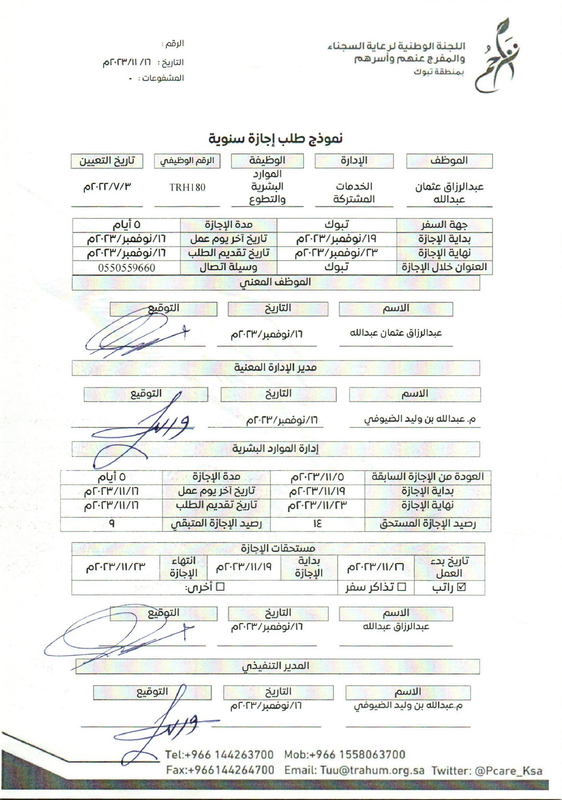 اللجنة الوطنية لرعاية السجناء
والمفرج عنهم وأسرهم
بمنطقة تبوك
تراحم
الرقم :
التاريخ : ٢٠٢٣/١١/١٦م
المشفوعات : -
نموذج طلب إجازة سنوية
الموظف الإدارة الوظيفة الرقم الوظيفي تاريخ التعيين
عبدالرزاق عثمان عبدالله الخدمات المشتركة الموارد البشرية والتطوع TRH180 ٢٠٢٢/٧/٣م
جهة السفر تبوك مدة الإجازة ٥ أيام
بداية الإجازة ١٩/نوفمبر/٢٠٢٣م تاريخ آخر يوم عمل ١٦/نوفمبر/٢٠٢٣م
نهاية الإجازة ٢٣/نوفمبر/٢٠٢٣م تاريخ تقديم الطلب ١٦/نوفمبر/٢٠٢٣م
العنوان خلال الإجازة تبوك وسيلة اتصال 0550559660
الموظف المعني
الاسم التاريخ التوقيع
عبدالرزاق عثمان عبدالله ١٦/نوفمبر/٢٠٢٣م
مدير الإدارة المعنية
الاسم التاريخ التوقيع
م. عبدالله بن وليد الضيوفي ١٦/نوفمبر/٢٠٢٣م
إدارة الموارد البشرية
العودة من الإجازة السابقة ٢٠٢٣/١١/٥م مدة الإجازة ٥ أيام
بداية الإجازة ٢٠٢٣/١١/١٩م تاريخ آخر يوم عمل ٢٠٢٣/١١/١٦م
نهاية الإجازة ٢٠٢٣/١١/٢٣م تاريخ تقديم الطلب ٢٠٢٣/١١/١٦م
رصيد الإجازة المستحق ١٤ رصيد الإجازة المتبقي ٩
مستحقات الإجازة
تاريخ بدء العمل ٢٠٢٣/١١/٢٦م بداية الإجازة ٢٠٢٣/١١/١٩م انتهاء الإجازة ٢٠٢٣/١١/٢٣م
☑ راتب ☐ تذاكر سفر ☐ أخرى:
الاسم التاريخ التوقيع
عبدالرزاق عبدالله ١٦/نوفمبر/٢٠٢٣م
المدير التنفيذي
الاسم التاريخ التوقيع
م.عبدالله بن وليد الضيوفي ١٦/نوفمبر/٢٠٢٣م
Tel:+966 144263700 Mob:+966 1558063700
Fax:+966144264700 Email: Tuu@trahum.org.sa Twitter: @Pcare_Ksa